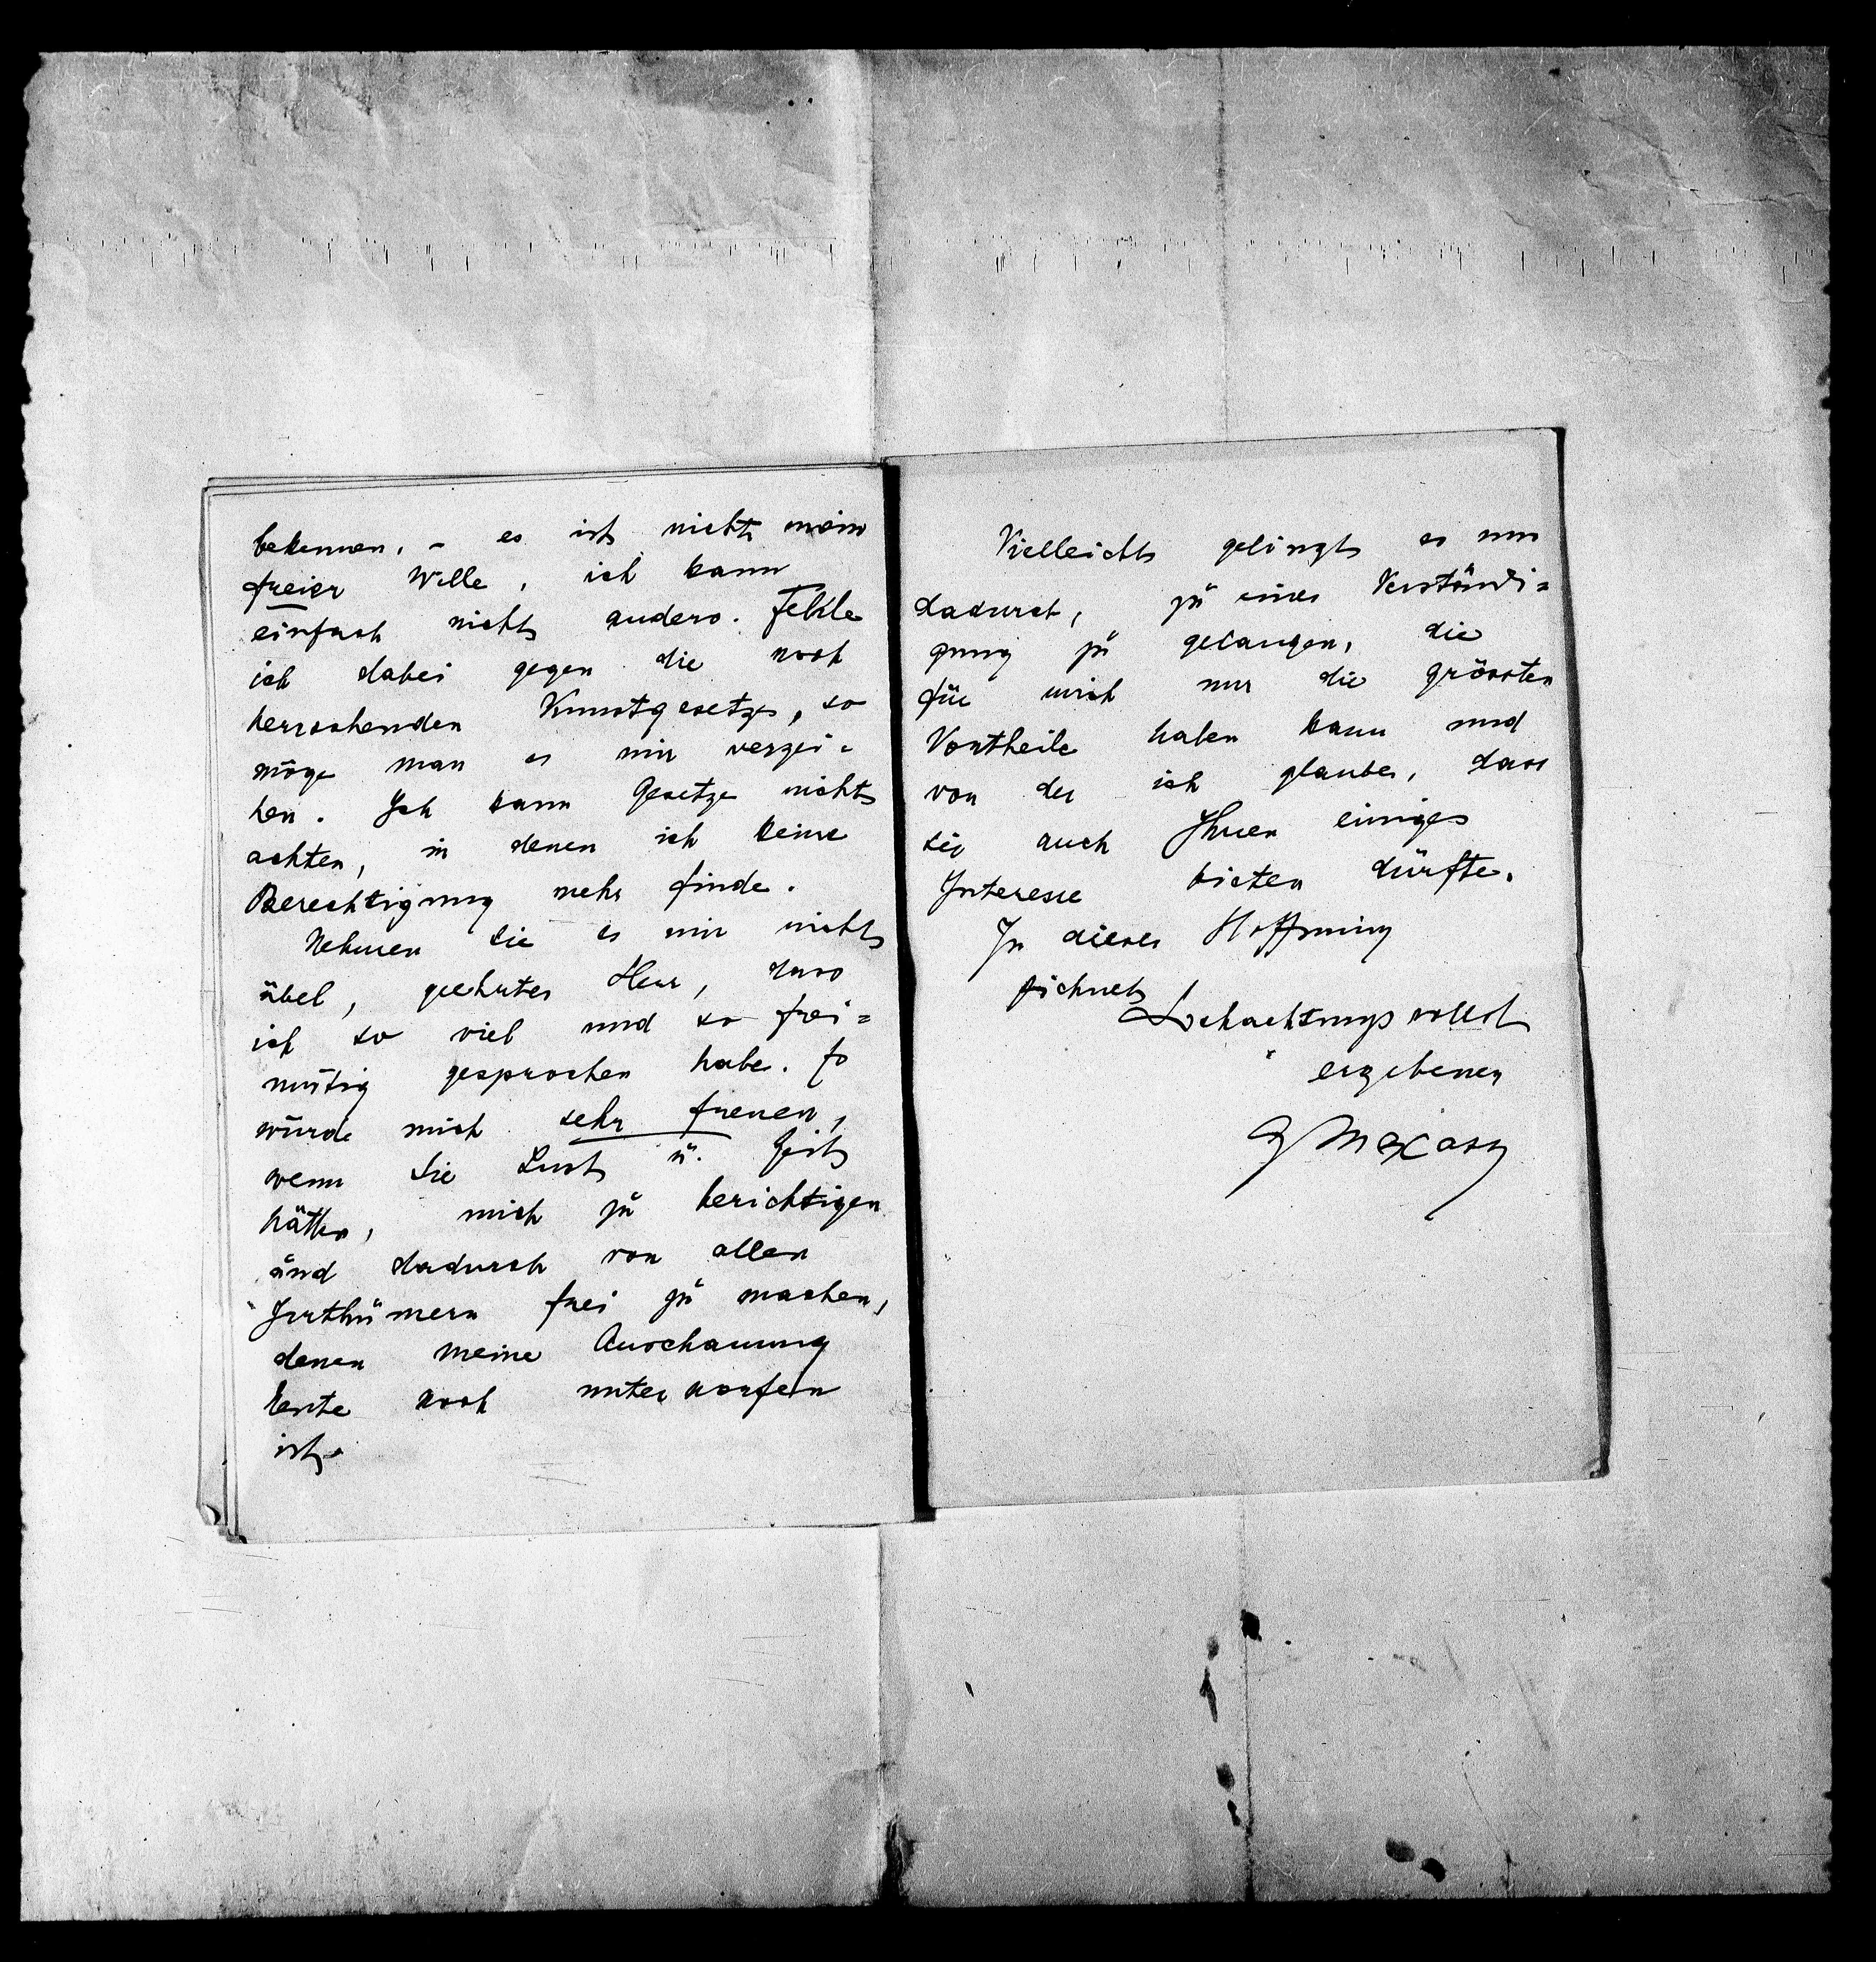 bekennen. – es ist nicht mein
freier Wille, ich kann
einfach nicht anders. Fehle
ich dabei gegen die noch
herrschenden Kunstgesetze, so
möge man es mir verzei=
hen. Ich kann Gesetze nicht
achten, in denen ich keine
Berechtigung mehr finde.
Nehmen Sie es mir nicht
übel, geehrter Herr, dass
ich so viel und so frei=
mütig gesprochen habe. Es
würde mich sehr freuen,
wenn Sie Lust u. Zeit
hätten, mich zu berichtigen
und dadurch von allen
Irrthümern frei zu machen,
denen meine Anschauung
heute noch unterworfen
ist.
Vielleicht gelingt es uns
dadurch, zu einer Verständi=
gung zu gelangen, die
für mich nur die grössten
Vortheile haben kann und
von der ich glaube, dass
sie auch Ihnen einiges
Interesse bieten dürfte.
In dieser Hoffnung
zeichnet
Hochachtungsvollst
ergebener